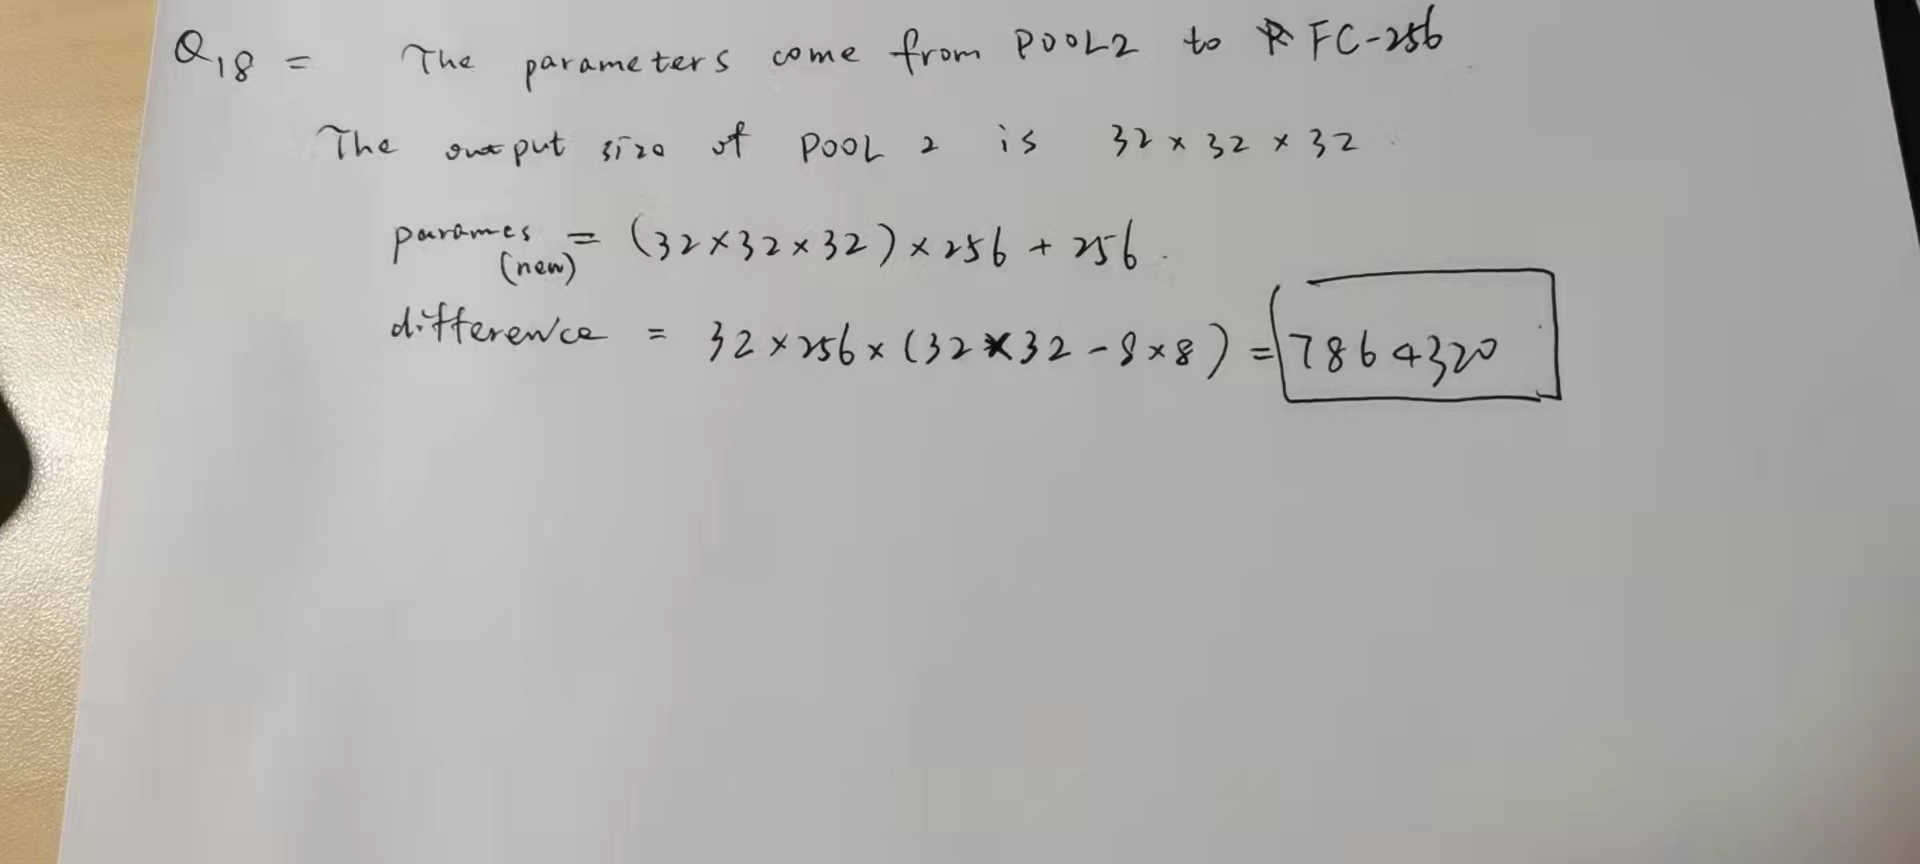 Q18 = The parameters come from POOL2 to FC-256
The output size of POOL 2 is 32 × 32 × 32
params = (32×32×32) × 256 + 256.
(new)
difference = 32 × 256 × (32 × 32 - 8 × 8) = 7864320